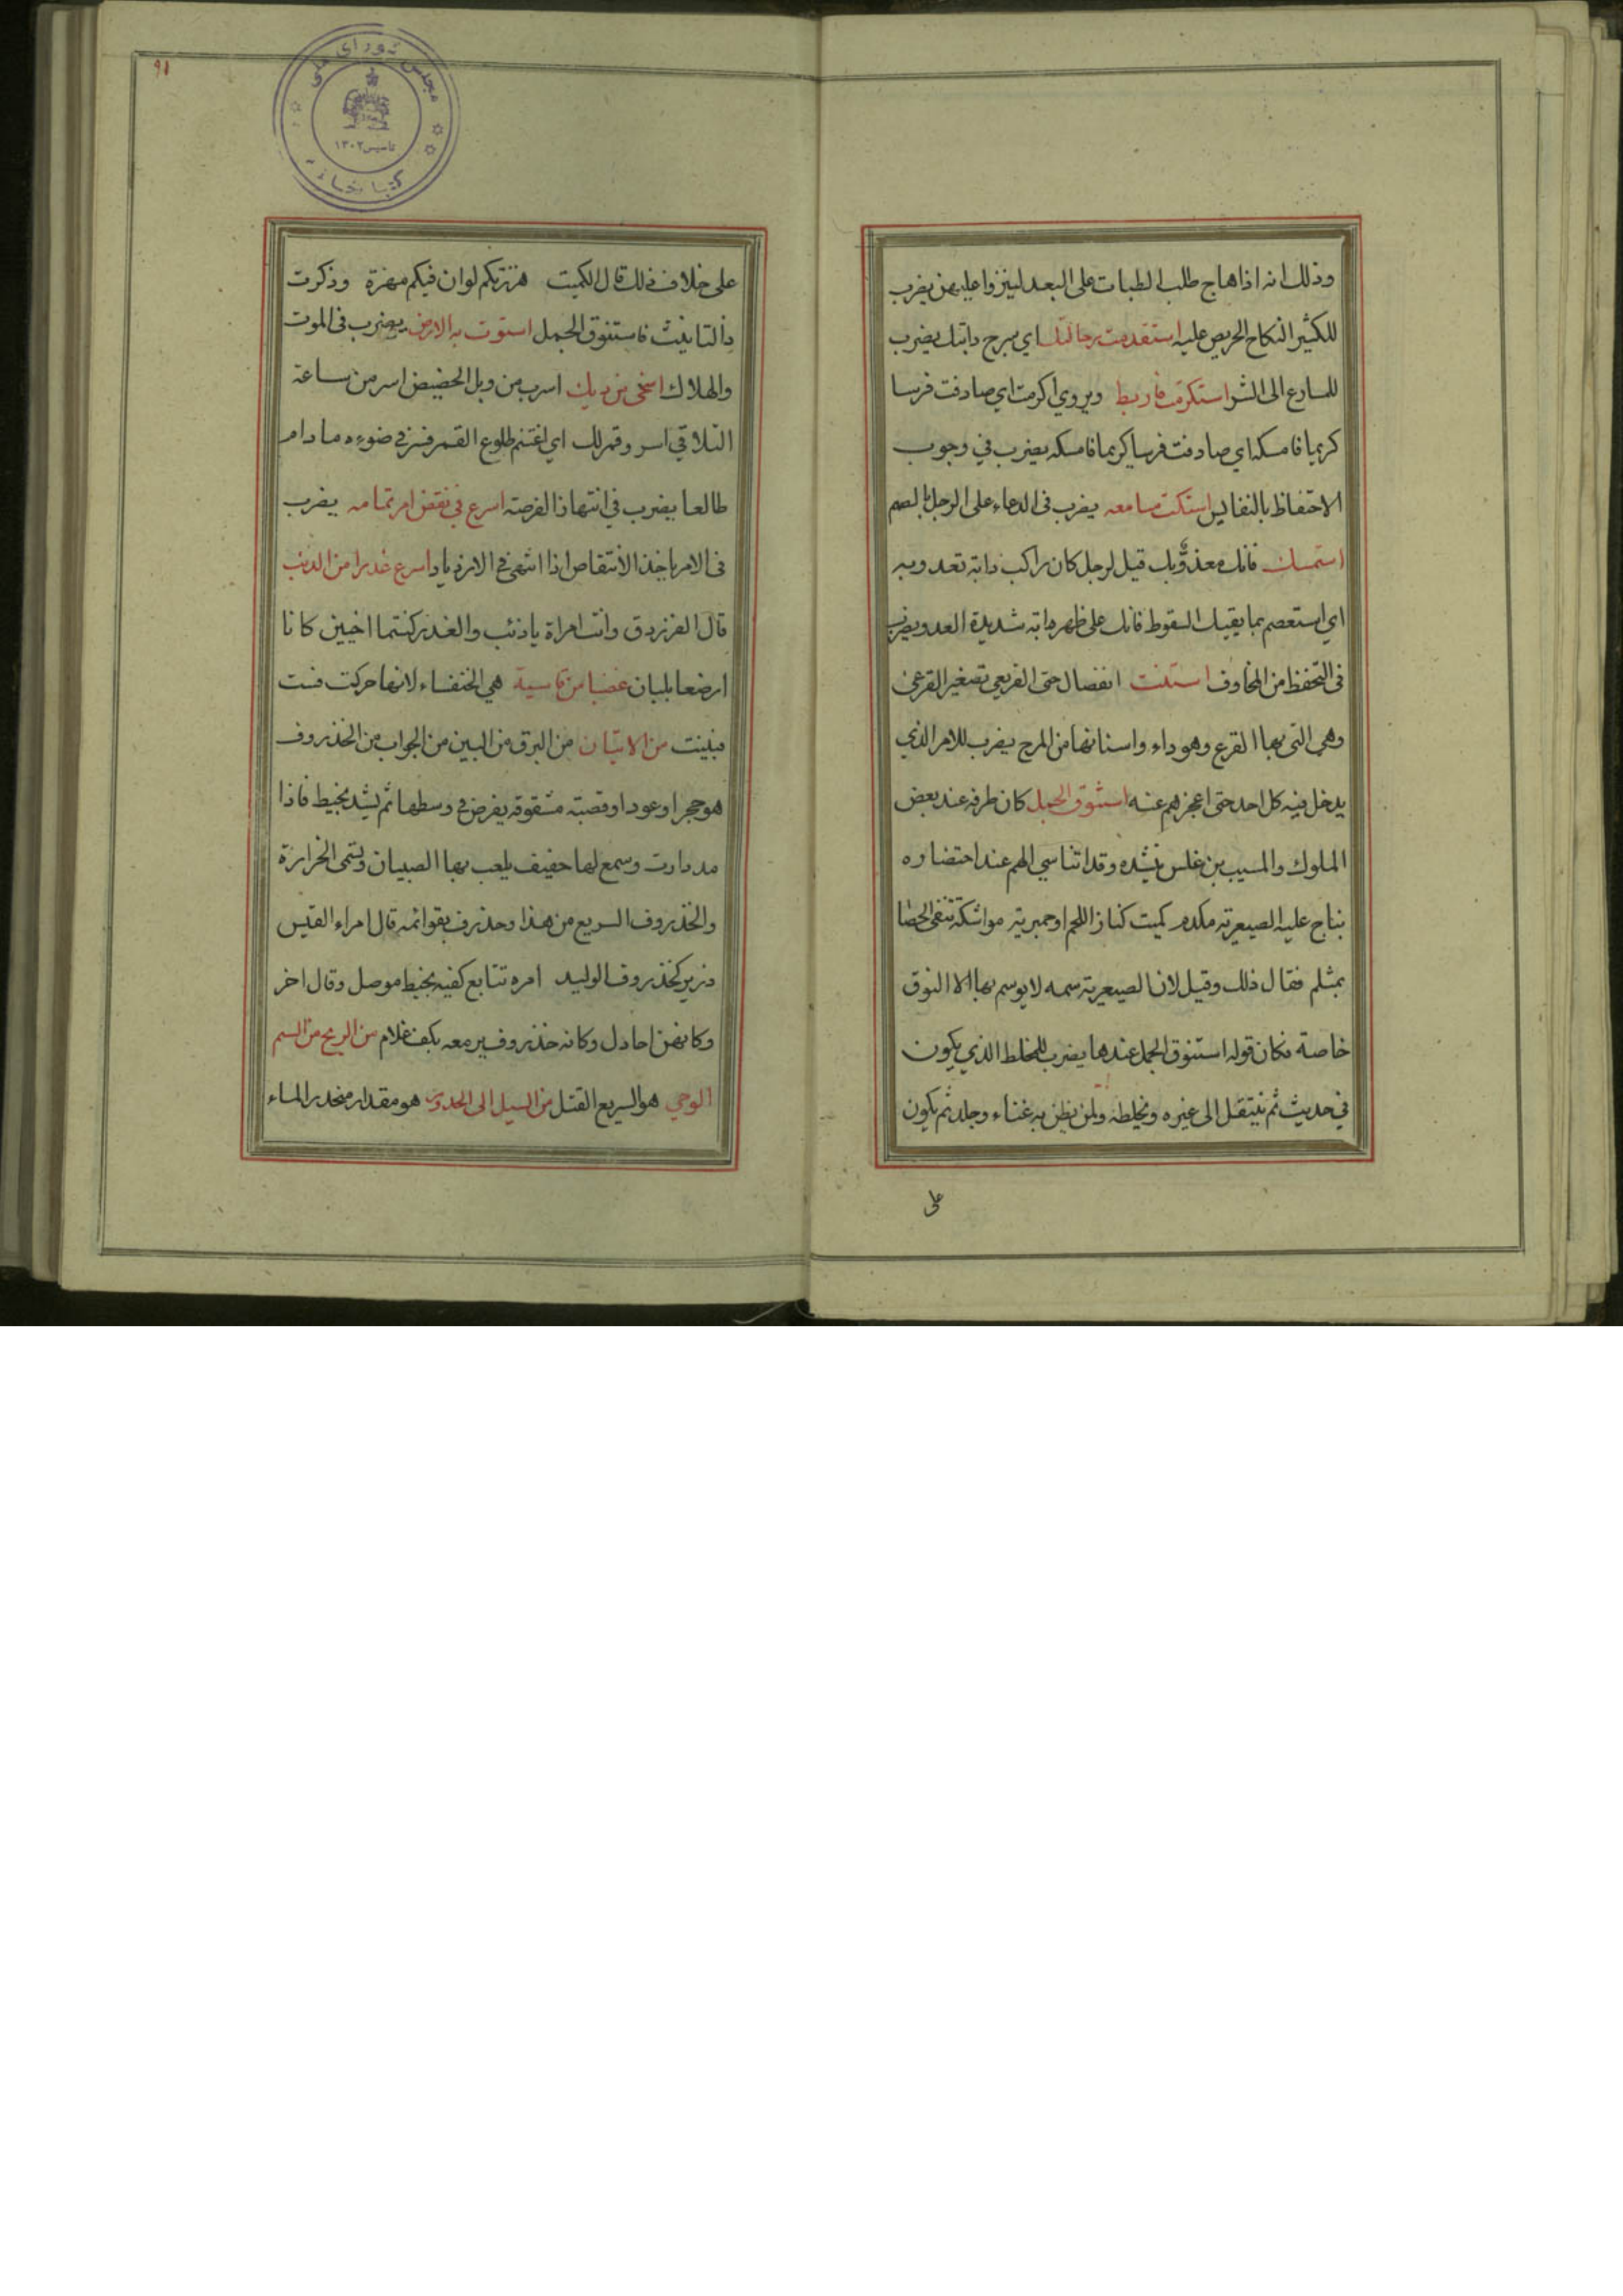 وذلك انه اذا هاج طلب الظبات على البعد لينزوا عليهن يضرب
للكثير النكاح الحريص عليه استقدمت رحالتك اي سرج دابتك يضرب
للسارع الى الشر استكرمت فاربط ويروي اكرمت اي صادفت فرسا
كريما فامسكه اي صادفت فرسا كريما فامسكه يضرب في وجوب
الاحتفاظ بالنفايس استكت مسامعه يضرب فى الدعاء على الرجل بالصم
استمسك فانك معذو بك قيل لرجل كان راكب دابة تعدو به
اي استعصم بما يقيك السقوط فانك على ظهر دابة شديدة العدو يضرب
فى التحفظ من المخاوف استنت الفصال حتى القريعي تصغير القرعي
وهي التى بها القرع وهو داء واستنانها من المرح يضرب للامر الذي
يدخل فيه كل احد حتى اعجزهم عنه استنوق الجمل كان طرفه عند بعض
الملوك والمسيب بن غلس ينشده وقد اتناسي الهم عند احتضاره
بناج عليه الصيعرية مكدم كميت كناز اللحم او حميرية مواشكة تنفى الحصا
بمثلم فقال ذلك وقيل لان الصيعرية سمه لا يوسم بها الا النوق
خاصة فكان قوله استنوق الجمل عندها يضرب للمخلط الذي يكون
في حديث ثم ينتقل الى غيره ويخلطه ولمن يظن به غناء وجلد ثم يكون
على
٩١
مجلس شورای ملی
تاسيس ١٣٠٢
كتابخانه
على خلاف ذلك قال الكميت هززتكم لوان فيكم مهزة وذكرت
ذا التانيث فاستنوق الجمل استوت به الارض يضرب فى الموت
والهلاك اسخى من ديك اسرب من وبل الحضيض اسر من ساعة
التلاقي اسر وقمر لك اي اغتنم طلوع القمر فسر في ضوءه ما دام
طالعا يضرب في انتهاذ الفرصة اسرع في نقض امر تمامه يضرب
فى الامر ياخذ الانتقاص اذا انتهى في الازدياد اسرع غدرا من الذئب
قال الفرزدق وانت امراة يا ذئب والغدر كنتما اخيين كانا
ارضعا بلبان غضبا من فاسية هي الخنفساء لانها حركت فست
فبينت من الاتيان من البرق من البين من الجواب من الخذروف
هو حجر او عود او قصبة مشقوقة يفرض في وسطها ثم يشد بخيط فاذا
مد دارت وسمع لها حفيف يلعب بها الصبيان وتسمى الخرازة
والخذروف السريع من هذا وحذرف بقوائمه قال امراء القيس
درير كخذروف الوليد امره تتابع كفيه بخيط موصل وقال اخر
وكانهن احادل وكانه خذروف يرمعه بكف غلام من الريح من السم
الوحي هو السريع القتل من السيل الى الحدور هو مقدار منحدر الماء